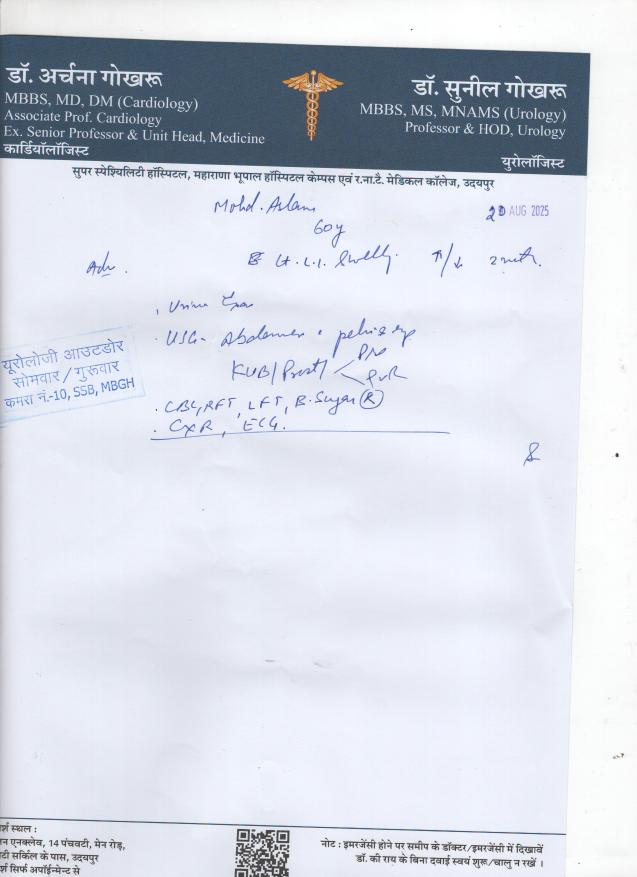 डॉ. अर्चना गोखरू
MBBS, MD, DM (Cardiology)
Associate Prof. Cardiology
Ex. Senior Professor & Unit Head, Medicine
कार्डियॉलॉजिस्ट
डॉ. सुनील गोखरू
MBBS, MS, MNAMS (Urology)
Professor & HOD, Urology
युरोलॉजिस्ट
सुपर स्पेश्यिलिटी हॉस्पिटल, महाराणा भूपाल हॉस्पिटल केम्पस एवं र.ना.टै. मेडिकल कॉलेज, उदयपुर
Mohd. Aslam
AUG 2025
60y
Adv.
Urine
USG- Abdomen pelvis
KUB/Prost/ Pre
PVR
CBC, RFT, LFT, B. Sugar (R)
CXR, ECG.
यूरोलोजी आउटडोर
सोमवार / गुरूवार
कमरा नं.-10, SSB, MBGH
र्श स्थल :
न एनक्लेव, 14 पंचवटी, मेन रोड़,
टी सर्किल के पास, उदयपुर
र्श सिर्फ अपॉईन्मेन्ट से
नोट : इमरजेंसी होने पर समीप के डॉक्टर/इमरजेंसी में दिखावें
डॉ. की राय के बिना दवाई स्वयं शुरू/चालु न रखें ।